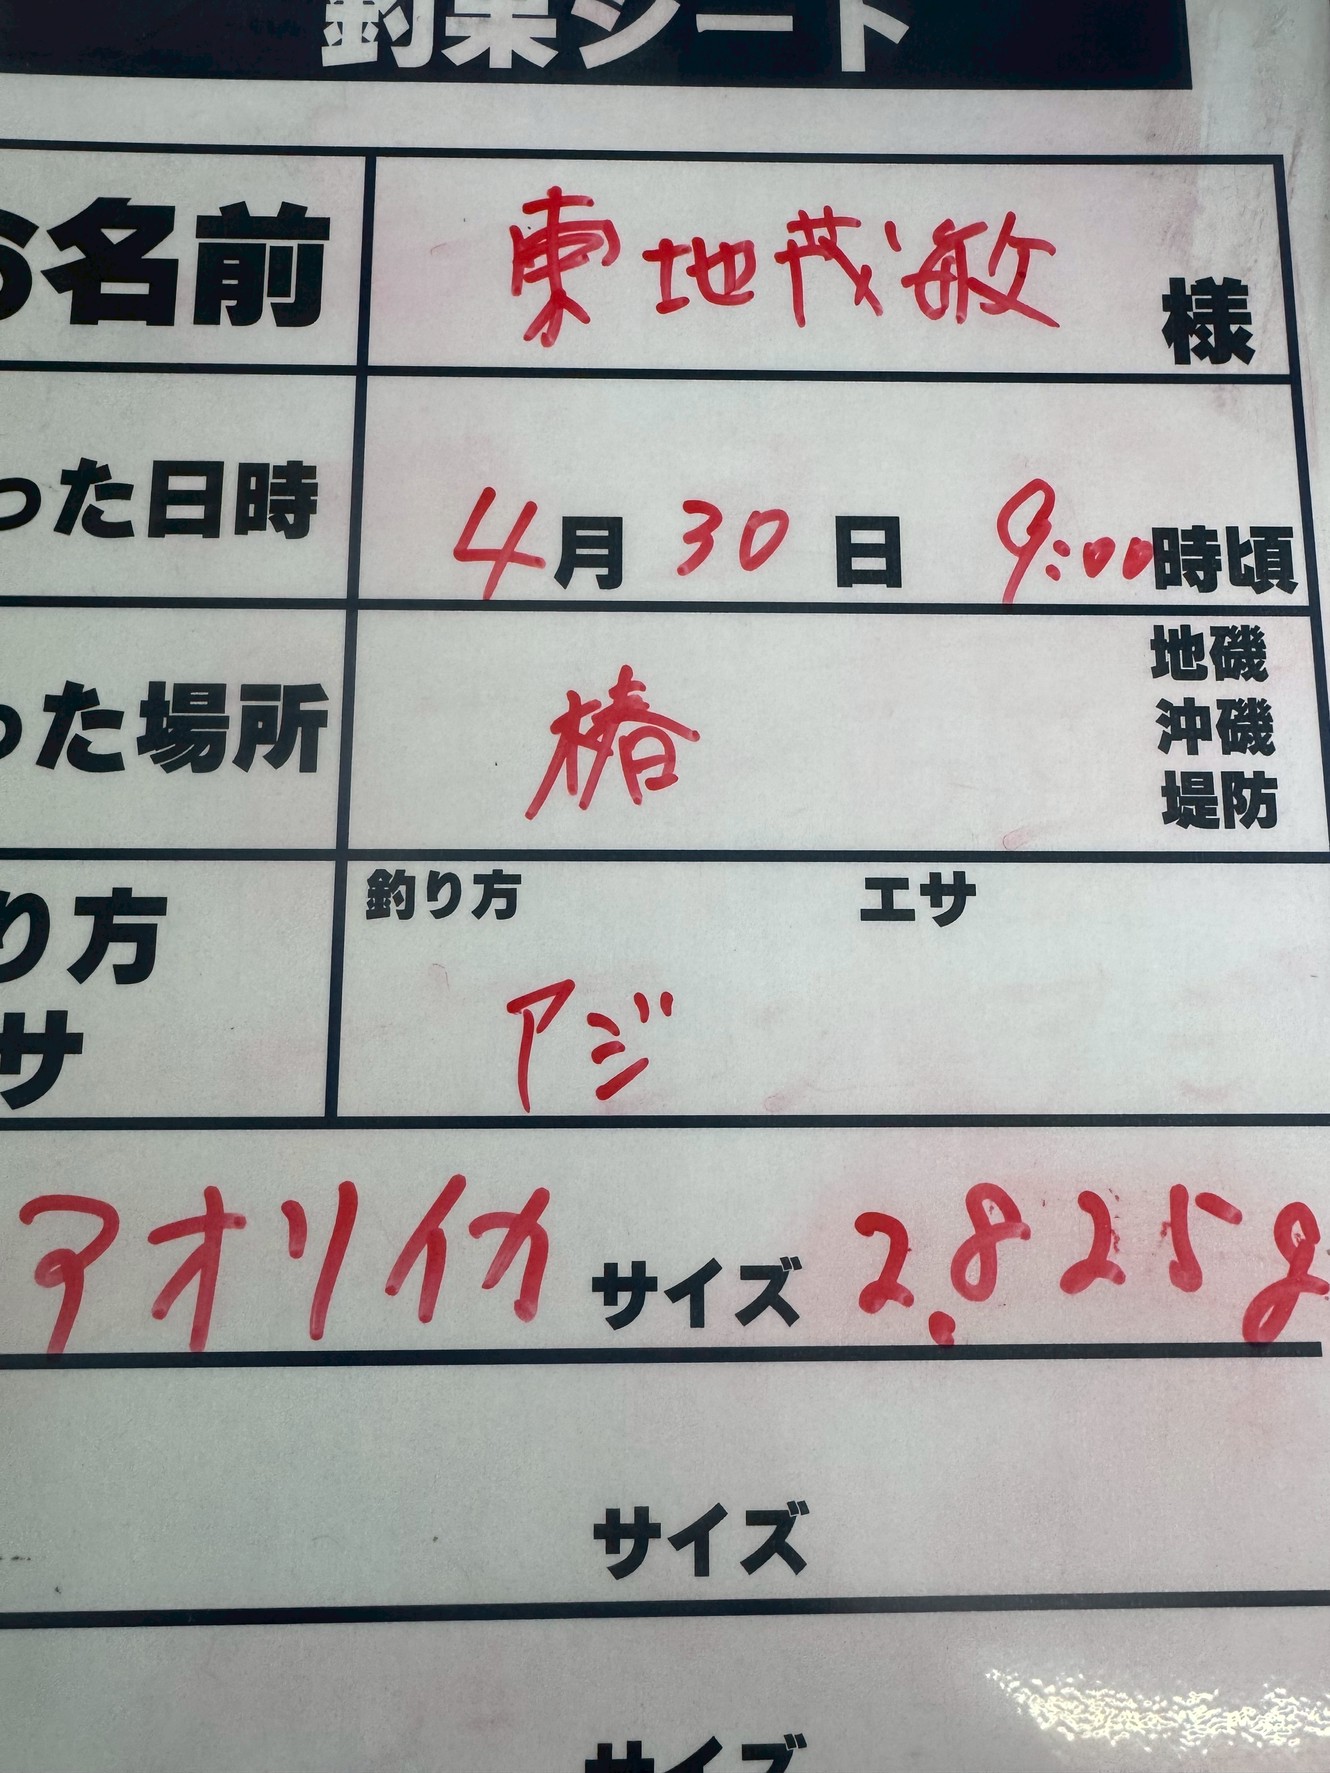 釣果シート
お名前 東地茂敏 様
った日時 4月30日 9:00時頃
地磯
った場所 椿 沖磯
堤防
釣り方 エサ
り方
アジ
サ
アオリイカ サイズ 2.825g
サイズ
サイズ